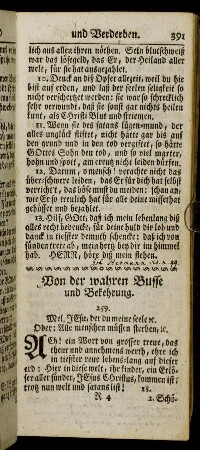 und Verderben. 391
lich aus allen ihren nöthen. Sein blutschweiß
war das lösegeld, das Er, der Heiland aller
welt, für sie hat ausgezahlet.
10. Denck an diß Opfer allezeit, weil du hie
bist auf erden, und laß der seelen seligkeit so
nicht verscherzet werden: sie war so schrecklich
sehr verwundt, daß sie sonst gar nichts heilen
kunt, als Christi Blut und striemen.
11. Wenn so des satans lügen-mund, der
alles unglück stiftet, nicht hätte gar bis auf
den grund und in den tod vergiftet, so hätte
GOttes Sohn den tod, und so viel marter,
hohn und spott, am creutz nicht leiden dürfen.
12. Darum, o mensch! verachte nicht das
überschwere leiden, das Er für dich hat selbst
verricht't, das böse must du meiden: schau an,
wie Er so treulich hat für alle deine missethat
gebüsset und bezahlet.
13. Hilf, GOtt, daß ich mein lebenlang diß
alles recht bedencke; für deine huld dir lob und
danck in tiefster demuth schencke: daß ich von
sünden trete ab, mein hertz bey dir im himmel
hab. HERR, höre diß mein flehen.
Von der wahren Busse
und Bekehrung.
259.
Mel. JEsu, der du meine seele ꝛc.
Oder: Alle menschen müssen sterben, ꝛc.
ACh! ein Wort von grosser treue, das
theur und annehmens werth, ehre ich
in tiefster reue lebens-lang auf dieser
erd: Hier in diese welt, ihr kinder, ein Erlö-
ser aller sünder, JEsus CHristus, kommen ist;
trotz nun welt und satans list!
R 4 2. Schö-